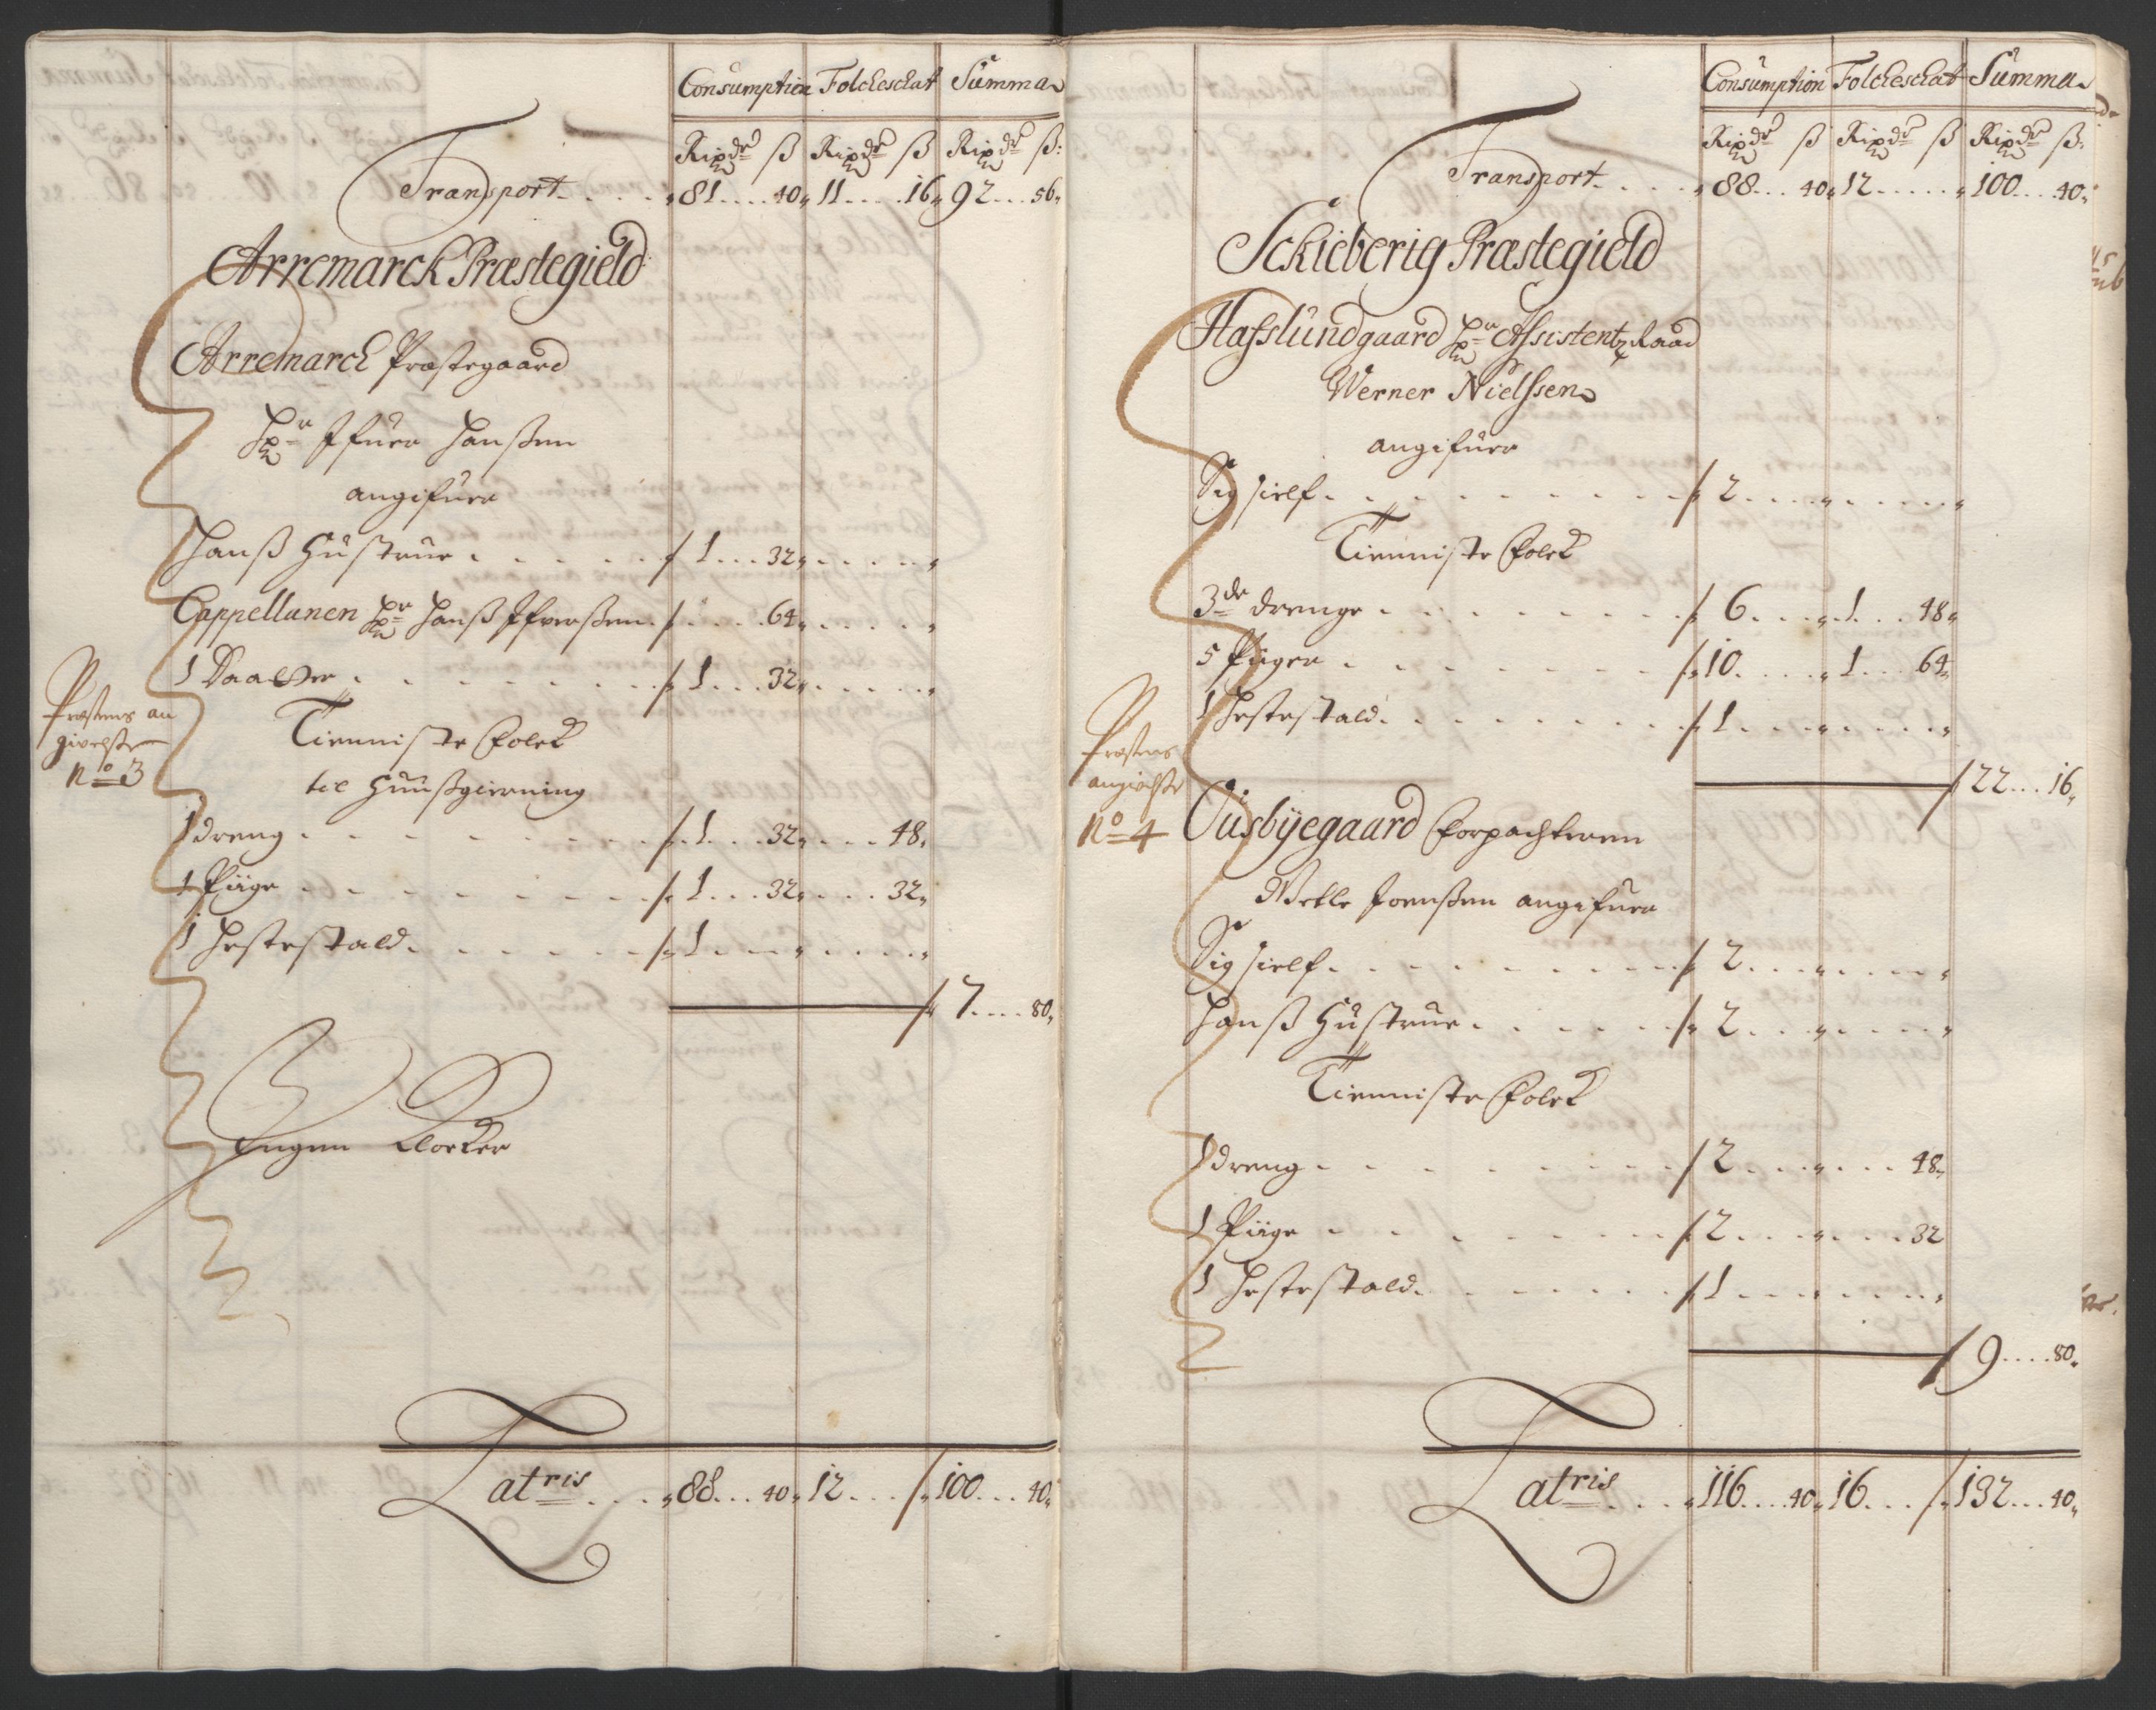 Consumption Folckeschat Summa
Rixdr ß Rixdr ß Rixdr ß:
Transport . . . . 81 . . . . 40 11 . . . . 16 92 . . . 56
Arremarck Præstegield
Arremarck Præstegaard
Hr Ifuer Hanßen
angifuer
Hanß Hustrue . . . . . . 1 . . . 32
Cappellanen Hr Hanß Ifverßen . . . . . 64
1 Daatter . . . . . . 1 . . . 32
Præstens an
givelse
No 3
Tienniste Folck
til Huußgierning
1 dreng . . . . . . 1 . . . 32 . . . 48
1 Piige . . . . . . 1 . . . 32 . . . 32
1 Hestestald . . . . . . 1
7 . . . . 80
Ingen Klocker
Latris . . . . 88 . . . 40 12 . . . 100 . . . 40
Consumption Folckeschat Summa
Rixdr ß Rixdr ß Rixdr ß:
Transport . . . . 88 . . . 40 12 . . . . . 100 . . . 40
Schieberig Præstegield
Hafslundgaard Hr Assistentz Raad
Werner Nielssen
angifuer
Sig sielf . . . . . . 2
Tienniste Folck
3de drenge . . . . . . 6 . . . 1 . . . 48
5 Piiger . . . . . . 10 . . . 1 . . . 64
1 Hestestald . . . . . . 1
Præstens
angivelse
No 4
22 . . . 16
Guusbÿegaard Forpachteren
angifuer
Sig sielf . . . . . . 2
Hanß Hustrue . . . . . . 2
Tienniste Folck
1 dreng . . . . . . 2 . . . . . . 48
1 Piige . . . . . . 2 . . . . . . 32
1 Hestestald . . . . . . 1
9 . . . . 80
Latris . . . . 116 . . . . 40 16 . . . 132 . . . 40